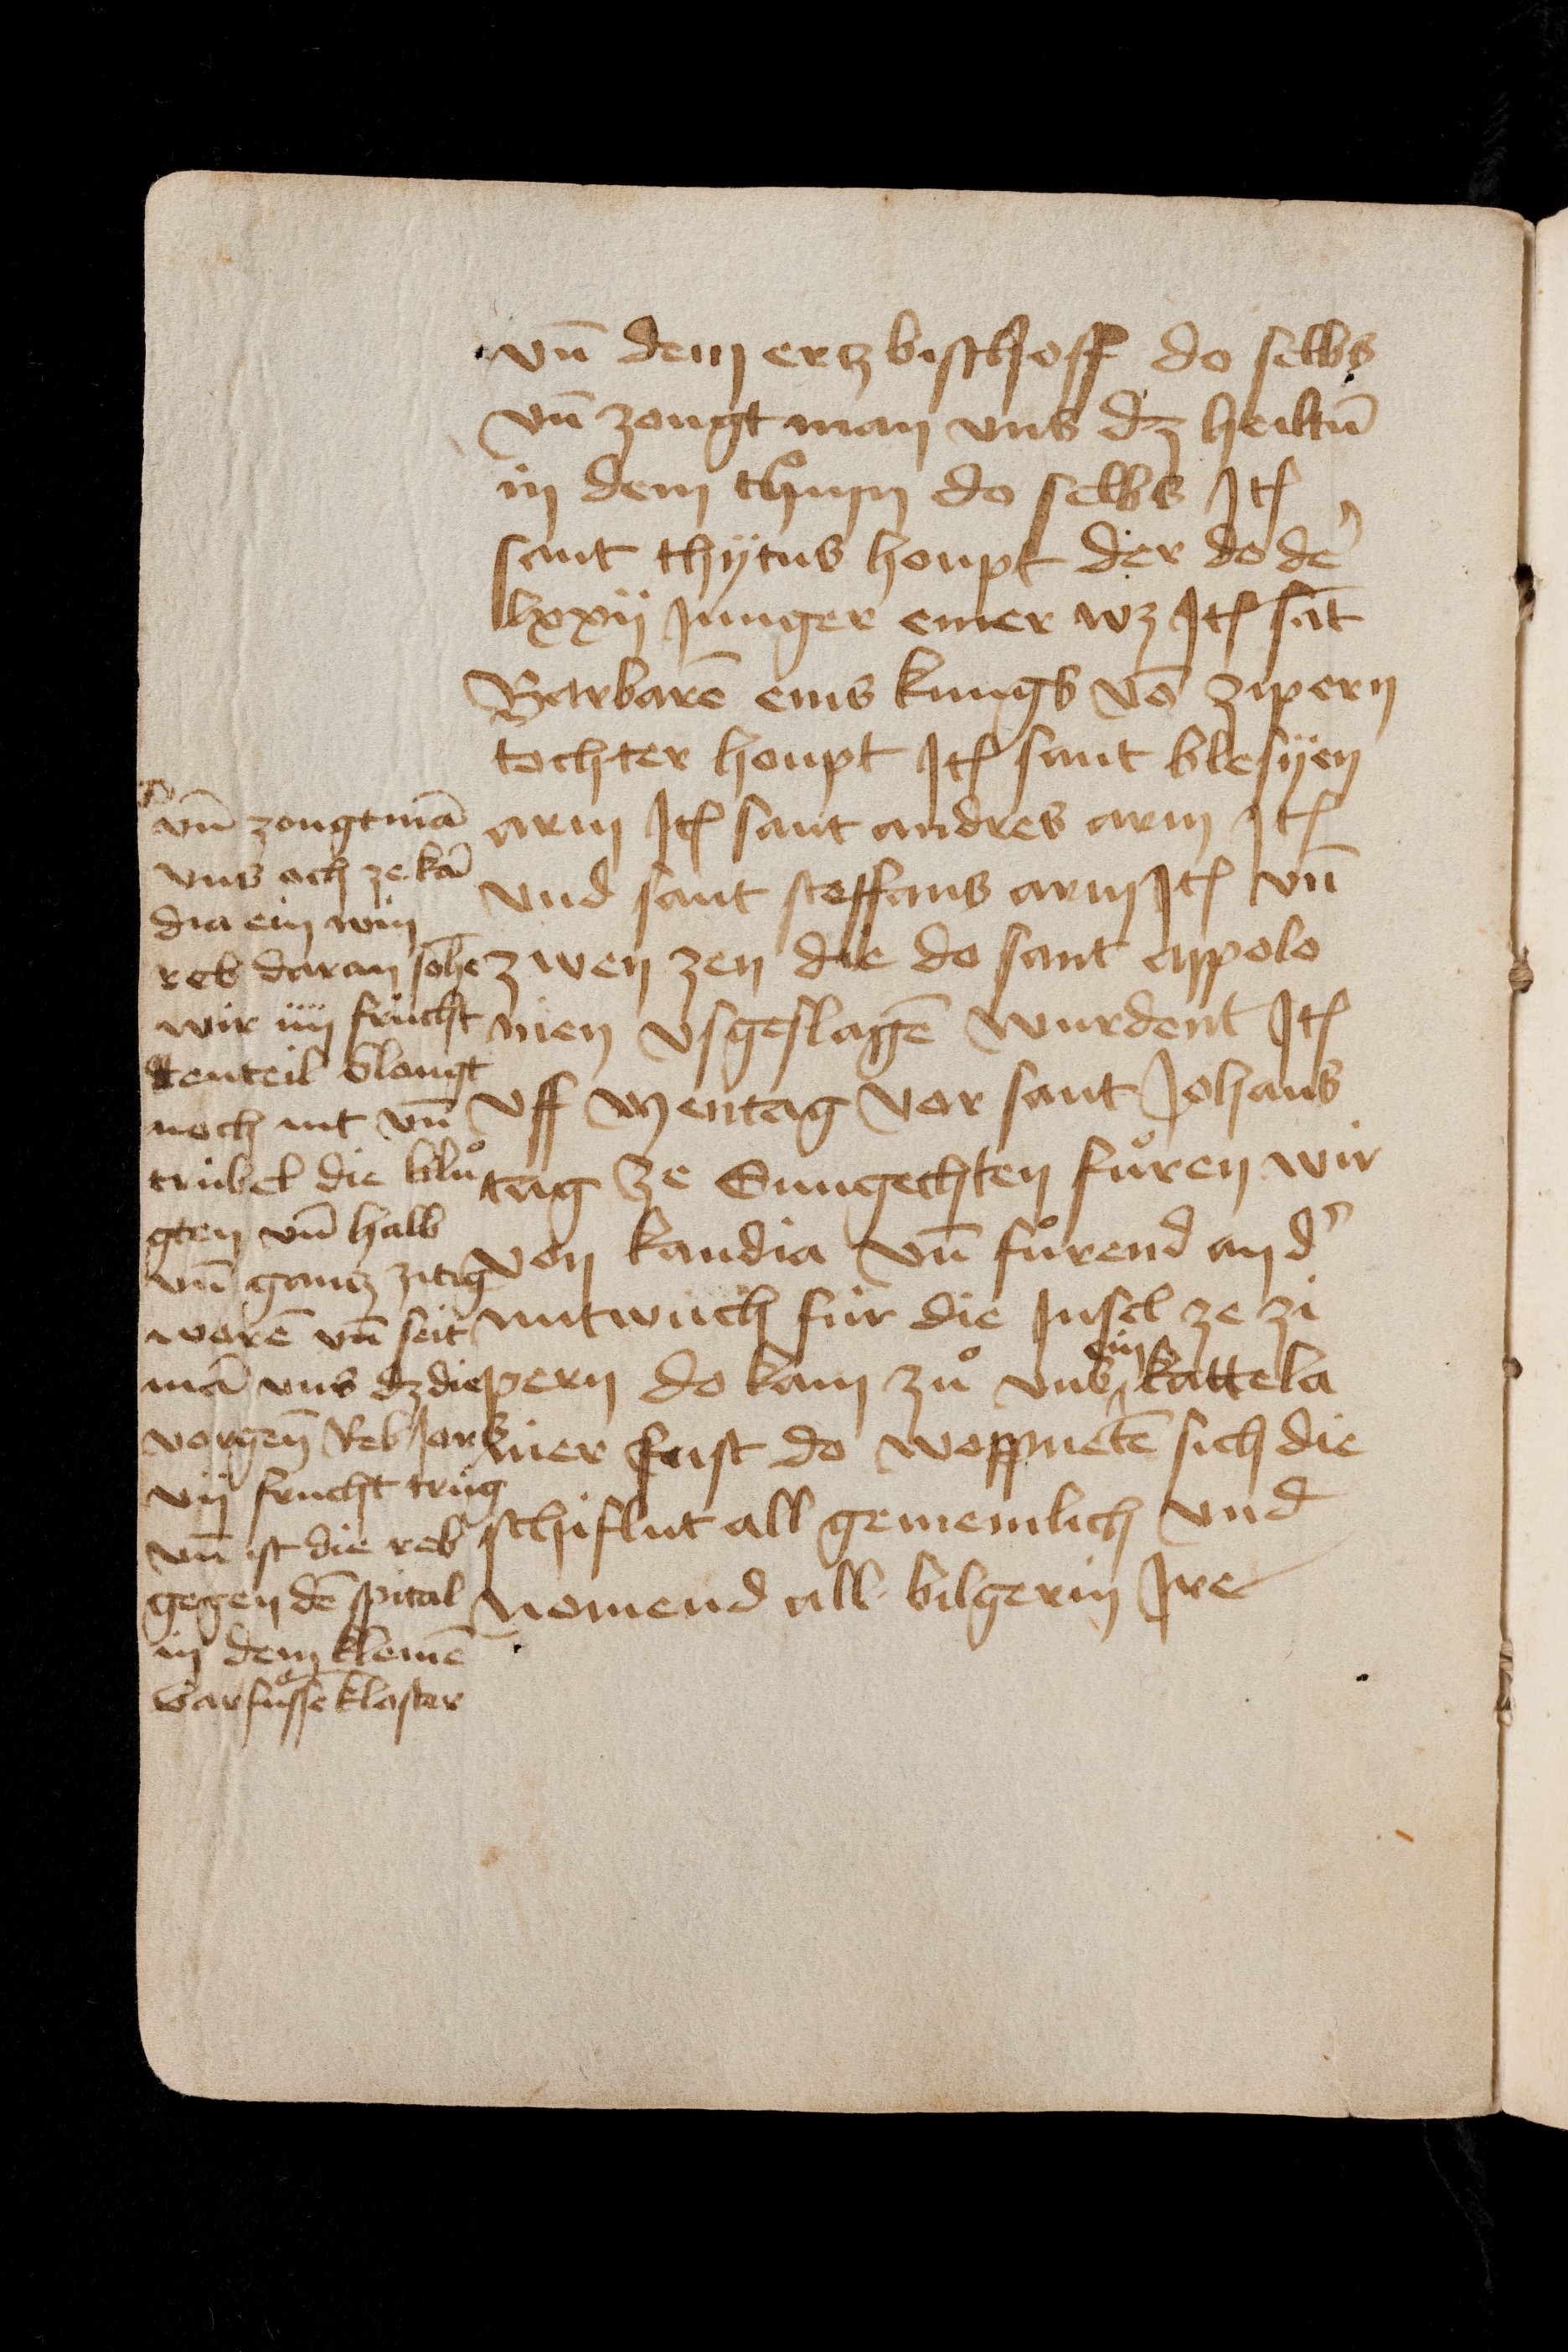 vn̄ dem ertzbischoff do selbs
vn̄ zougt man vns dz heiltū
in dem thům do selbs Jtē
sant thÿtus houpt der do de᷑
lxxij Junger einer wz Jtē sāt
Barbarē eins kungs vō zipern
tochter houpt Jtē sant blesÿen
arm Jtē sant andres arm Jtē
vnd sant steffans arm Jtē vn̄
zwen zen die do sant appolo
nien vsgeslagē wurdent Jtē
vff Mentag vor sant Johans
tag ze Sungechten fůren wir
von kandia vn̄ fůrend an d᷑
mitwuch für die Insel ze zi
pern do kam zů vns ein kattela
nier fust do woppnetē sich die
schiflut all gemeinlich vnd
nomend all bilgerin Jre
vn̄ zougt mā
vns och ze kā
dia ein win
reb daran sohē
wir iiij frücht
der teil blangt
noch nit vn̄
trübel die blů
gten vn̄ halb
vn̄ gantz zitig
warē vn̄ seit
mā vns dz die
vorgen̄ Reb Jors
vij frucht trůg
vn̄ ist die reb
gegen dē spital
in dem kleinē
barfůssē kloster